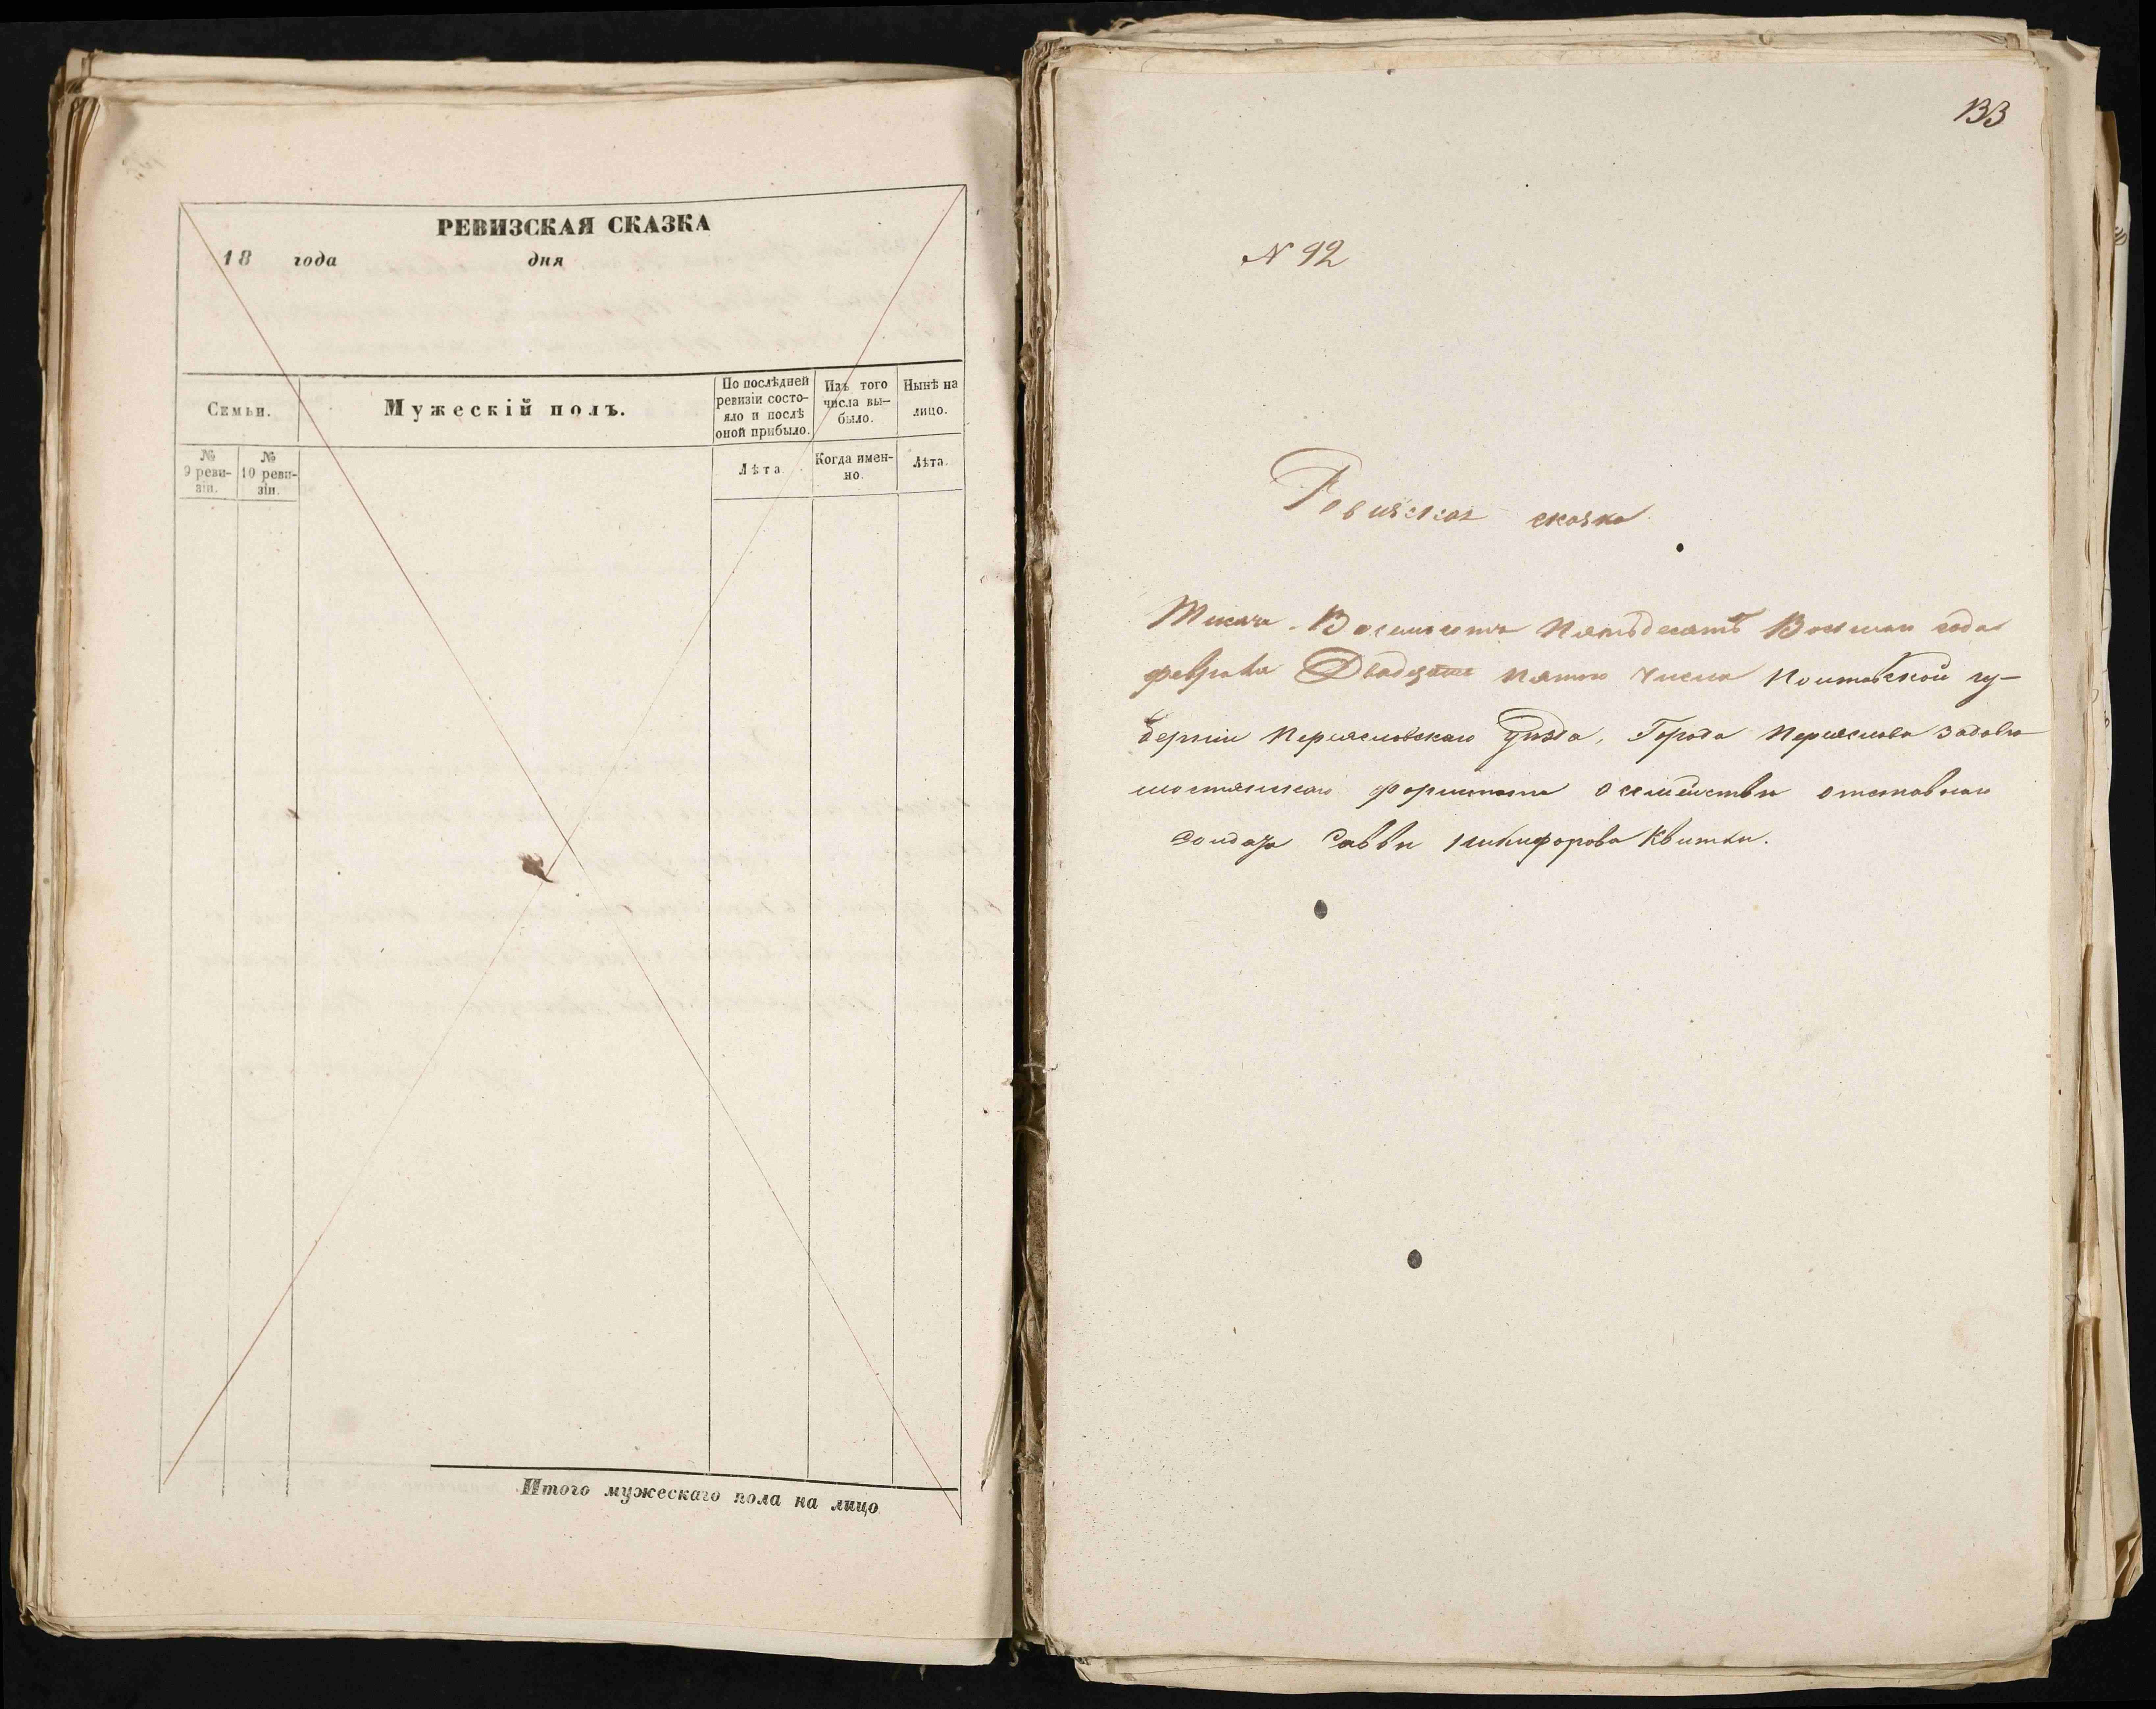 РЕВИЗСКАЯ СКАЗКА
18 года дня
Семьи.
Мужескій полъ.
По послѣдней
ревизіи состо-
яло и послѣ
оной прибыло.
Изъ того
числа вы-
было.
Нынѣ на
лицо.
№
9 реви-
зіи.
№
10 реви-
зіи.
Лѣта.
Когда имен-
но.
Лѣта.
Итого мужескаго пола на лицо
133
N 92
Ревизская сказка
Тисяча Восимсотъ Пятьдесятъ Восмаго года
февраля Двадцать пятого числа Полтавской гу-
берніи Переяславскаго уѣзда, Города Переяслава Задовго
мостянскаго форштата о семействѣ отставнаго
Солдата Саввы Никифорова Квитки.